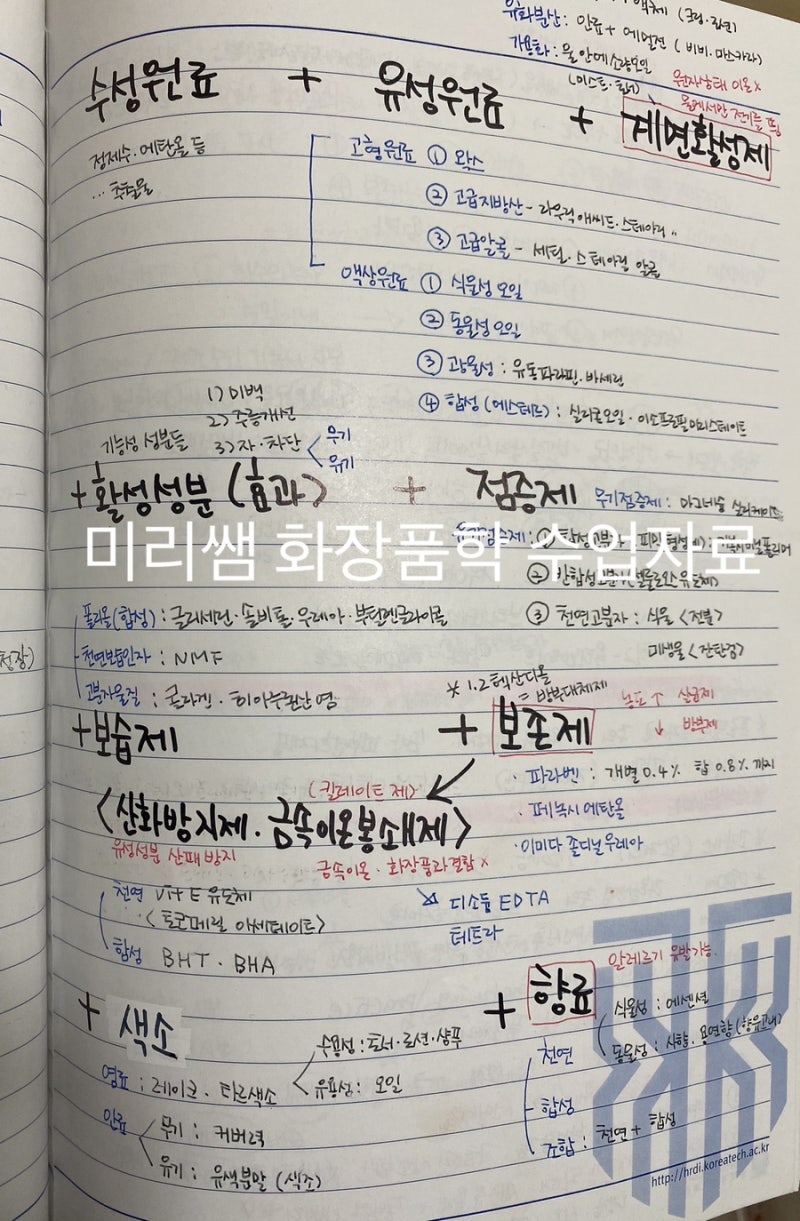 유화분산 : 안료 + 에멀젼 ( 비비 · 마스카라)
가용화 : 물 안에 소량오일
원자상태 이온 x
수성원료 + 유성원료 + 계면활성제
정제수 · 에탄올 등
... 추출물
고형원료 ① 왁스
② 고급지방산 - 라우릭애씨드 · 스테아릭 〃
③ 고급알콜 - 세틸 · 스테아릴 알콜
액상원료 ① 식물성 오일
② 동물성 오일
③ 광물성 : 유동파라핀 · 바세린
④ 합성 (에스테르) : 실리콘오일 · 이소프로필미리스테이트
기능성 성분들
1) 미백
2) 주름개선
3) 자 · 차단 < 무기
유기
+ 활성성분 (효과) + 점증제
무기점증제 : 마그네슘 실리케이트
미리쌤 화장품학 수업자료
② 반합성고분자(셀룰로오스유도체)
③ 천연고분자 : 식물 <전분>
미생물 <잔탄검>
폴리올(합성) : 글리세린 · 솔비톨 · 우레아 · 부틸렌글라이콜
천연보습인자 : NMF
고분자물질 : 콜라겐 · 히아루론산 염
* 1.2 헥산디올
= 방부대체제
농도 ↑ 살균제
↓ 방부제
+ 보습제 + 보존제
· 파라벤 : 개별 0.4% 합 0.8% 까지
· 페녹시 에탄올
· 이미다 졸디닐 우레아
(킬레이트 제)
< 산화방지제 · 금속이온봉쇄제 >
유성성분 산패 방지
금속이온 · 화장품과결합 x
천연 Vit E 유도체
<토코페릴 아세테이트>
합성 BHT · BHA
디소듐 EDTA
테트라
+ 색소 + 향료
알레르기 유발가능
염료 : 레이크 · 타르색소
수용성 : 토너 · 로션 · 샴푸
유용성 : 오일
안료 무기 : 커버력
유기 : 유색분말 (색조)
천연
식물성 : 에센셜
동물성 : 사향 · 용연향 (향유고래)
합성
조합 : 천연 + 합성
http://hrdi.koreatech.ac.kr